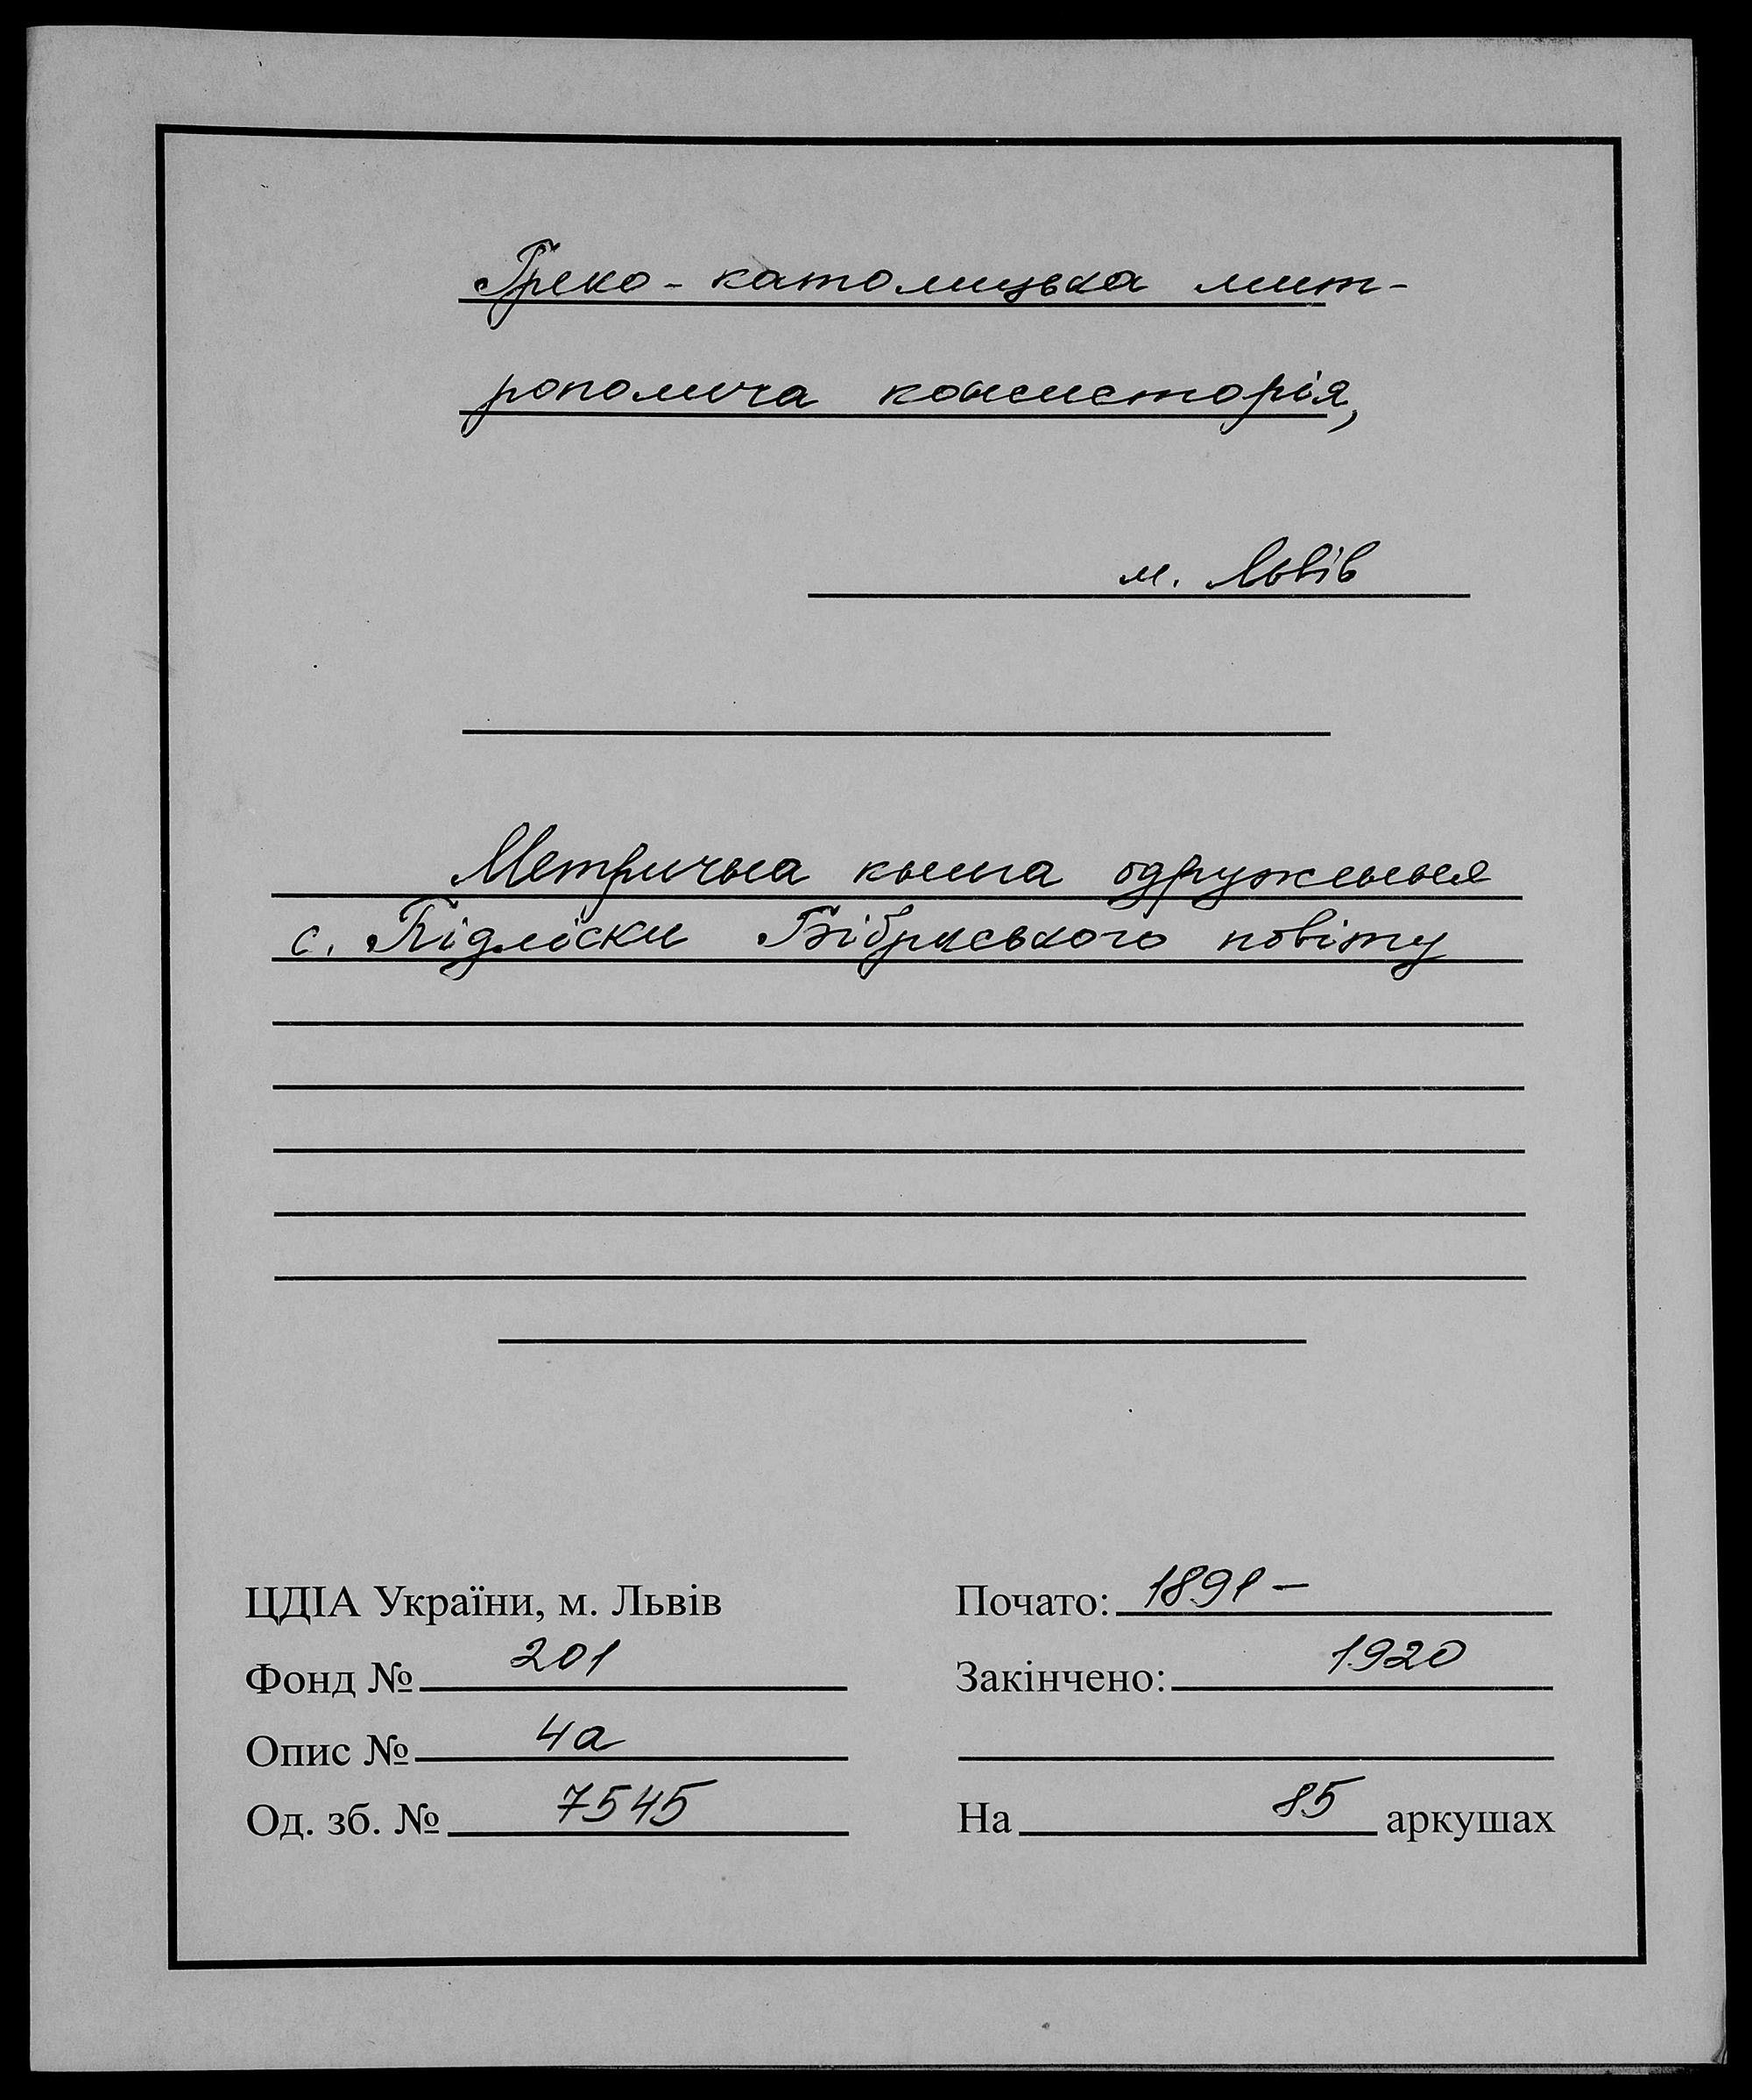 Греко-католицька мит-
рополича консисторія,
м. Львів
Метрична книга одруження
с. Підліски Бібрського повіту
ЦДІА України, м. Львів
Фонд № 201
Опис № 4а
Од. зб. № 7545
Почато: 1891 –
Закінчено: 1920
На 85 аркушах